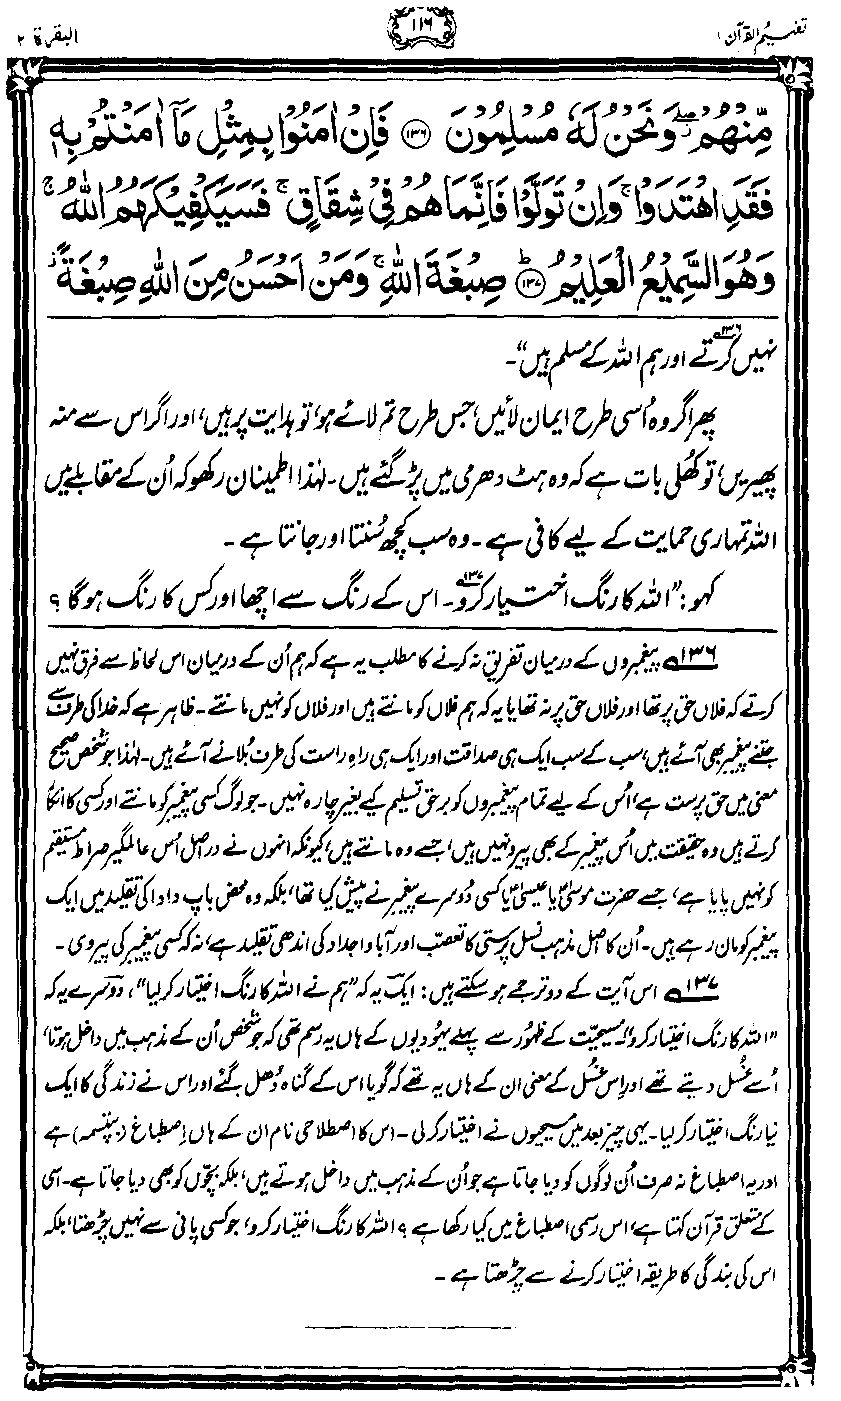 تفہیم القرآن ۱
۱۱۶
البقرۃ ۲
مِّنْهُمْ ۖ وَنَحْنُ لَهٗ مُسْلِمُوْنَ ﴿۱۳۶﴾ فَاِنْ اٰمَنُوْا بِمِثْلِ مَآ اٰمَنْتُمْ بِهٖ
فَقَدِ اهْتَدَوْا ۚ وَاِنْ تَوَلَّوْا فَاِنَّمَا هُمْ فِيْ شِقَاقٍ ۚ فَسَيَكْفِيْكَهُمُ اللّٰهُ ۚ
وَهُوَ السَّمِيْعُ الْعَلِيْمُ ﴿۱۳۷﴾ صِبْغَةَ اللّٰهِ ۚ وَمَنْ اَحْسَنُ مِنَ اللّٰهِ صِبْغَةً ۡ
نہیں کرتے ۱۳۶ اور ہم اللہ کے مسلم ہیں“۔
پھر اگر وہ اُسی طرح ایمان لائیں، جس طرح تم لائے ہو، تو ہدایت پر ہیں، اور اگر اس سے منہ
پھیریں، تو کھُلی بات ہے کہ وہ ہٹ دھرمی میں پڑ گئے ہیں۔ لہٰذا اطمینان رکھو کہ اُن کے مقابلے میں
اللہ تمہاری حمایت کے لیے کافی ہے۔ وہ سب کچھ سُنتا اور جانتا ہے۔
کہو: ”اللہ کا رنگ اختیار کرو ۱۳۷۔ اس کے رنگ سے اچھا اور کس کا رنگ ہوگا؟
۱۳۶ پیغمبروں کے درمیان تفریق نہ کرنے کا مطلب یہ ہے کہ ہم اُن کے درمیان اس لحاظ سے فرق نہیں
کرتے کہ فلاں حق پر تھا اور فلاں حق پر نہ تھا یا یہ کہ ہم فلاں کو مانتے ہیں اور فلاں کو نہیں مانتے۔ ظاہر ہے کہ خدا کی طرف سے
جتنے پیغمبر بھی آئے ہیں، سب کے سب ایک ہی صداقت اور ایک ہی راہِ راست کی طرف بُلانے آئے ہیں۔ لہٰذا جو شخص صحیح
معنی میں حق پرست ہے، اُس کے لیے تمام پیغمبروں کو برحق تسلیم کیے بغیر چارہ نہیں۔ جو لوگ کسی پیغمبر کو مانتے اور کسی کا انکار
کرتے ہیں وہ حقیقت میں اُس پیغمبر کے بھی پیرو نہیں ہیں، جسے وہ مانتے ہیں، کیونکہ انہوں نے دراصل اُس عالمگیر صراطِ مستقیم
کو نہیں پایا ہے، جسے حضرت موسیٰؑ یا عیسیٰؑ یا کسی دُوسرے پیغمبر نے پیش کیا تھا، بلکہ وہ محض باپ دادا کی تقلید میں ایک
پیغمبر کو مان رہے ہیں۔ اُن کا اصل مذہب نسل پرستی کا تعصّب اور آبا و اجداد کی اندھی تقلید ہے، نہ کہ کسی پیغمبر کی پیروی۔
۱۳۷ اس آیت کے دو ترجمے ہو سکتے ہیں: ایک یہ کہ ”ہم نے اللہ کا رنگ اختیار کر لیا“، دوسرے یہ کہ
”اللہ کا رنگ اختیار کرو“۔ مسیحیّت کے ظہُور سے پہلے یہودیوں کے ہاں یہ رسم تھی کہ جو شخص اُن کے مذہب میں داخل ہوتا،
اُسے غُسل دیتے تھے اور اِس غُسل کے معنی ان کے ہاں یہ تھے کہ گویا اس کے گناہ دُھل گئے اور اس نے زندگی کا ایک
نیا رنگ اختیار کر لیا۔ یہی چیز بعد میں مسیحیوں نے اختیار کر لی۔ اس کا اصطلاحی نام ان کے ہاں اِصطباغ (بپتسمہ) ہے
اور یہ اصطباغ نہ صرف اُن لوگوں کو دیا جاتا ہے جو اُن کے مذہب میں داخل ہوتے ہیں، بلکہ بچّوں کو بھی دیا جاتا ہے۔ اسی
کے متعلق قرآن کہتا ہے، اس رسمی اصطباغ میں کیا رکھا ہے؟ اللہ کا رنگ اختیار کرو، جو کسی پانی سے نہیں چڑھتا، بلکہ
اس کی بندگی کا طریقہ اختیار کرنے سے چڑھتا ہے۔